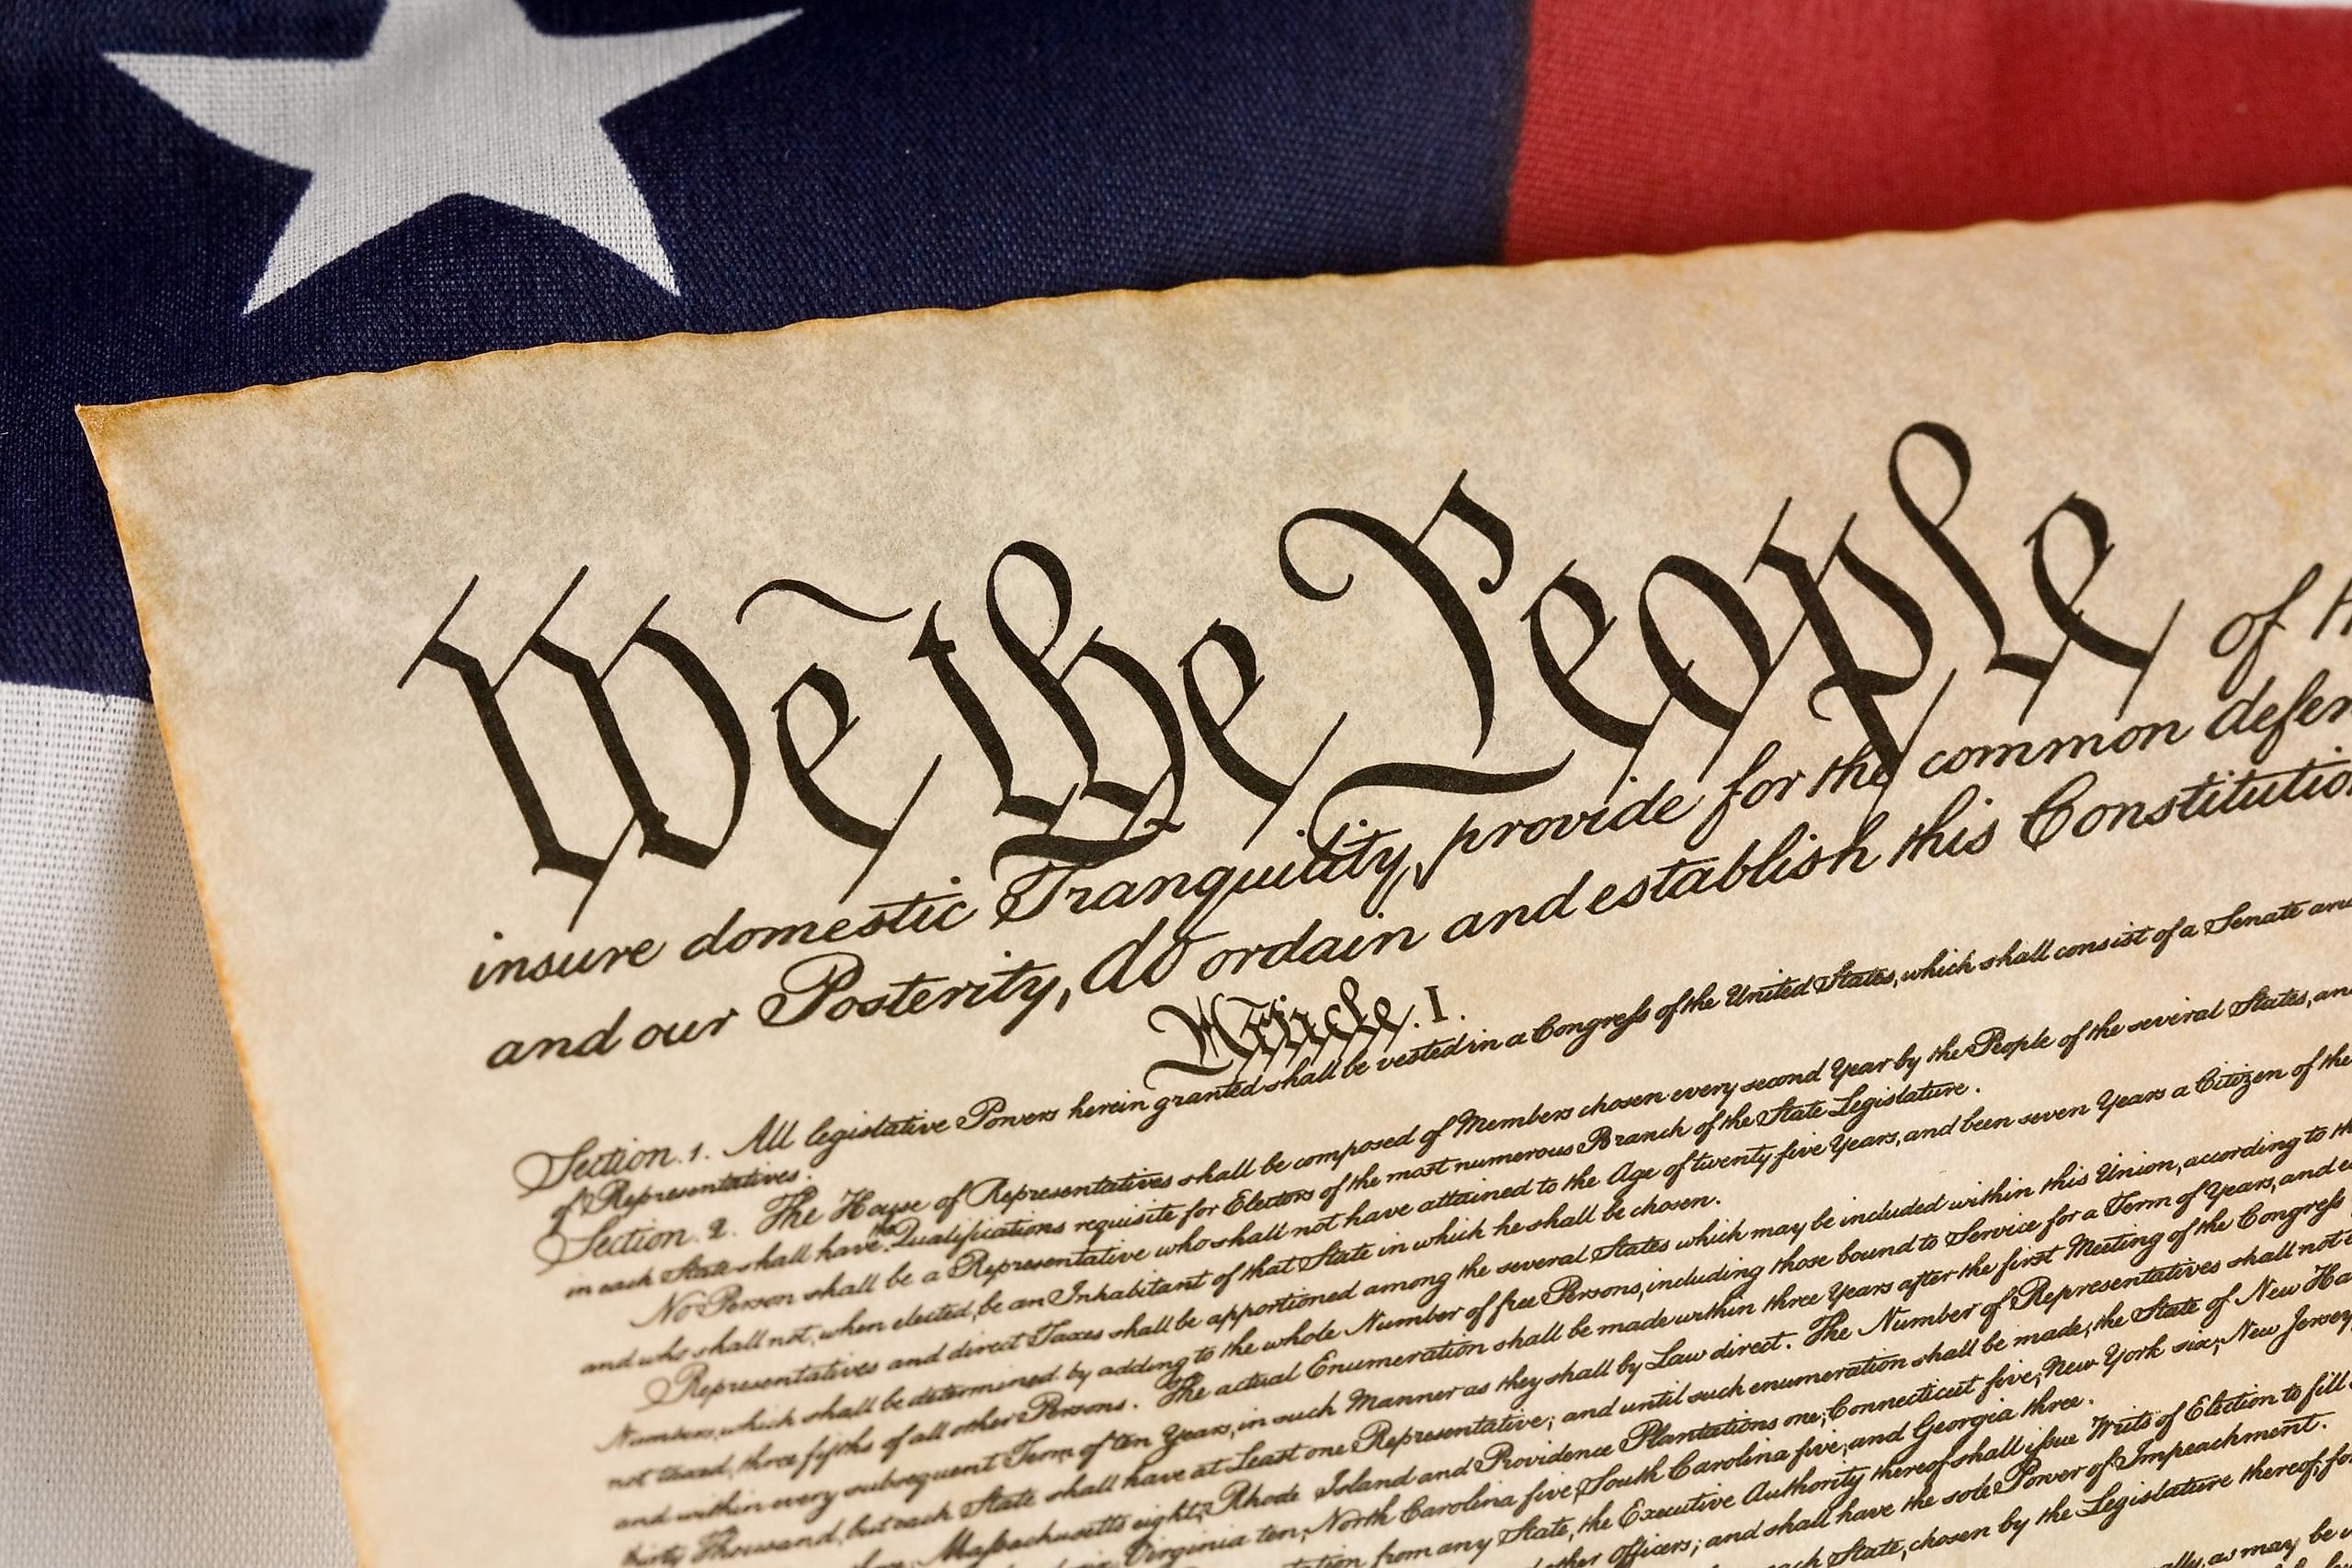 We the People of
insure domestic Tranquility, provide for the common defen
and our Posterity, do ordain and establish this Constitutio
Article. I.
Section. 1. All legislative Powers herein granted shall be vested in a Congress of the United States, which shall consist of a Senate and
of Representatives.
Section. 2. The House of Representatives shall be composed of Members chosen every second Year by the People of the several States, and
in each State shall have the Qualifications requisite for Electors of the most numerous Branch of the State Legislature.
No Person shall be a Representative who shall not have attained to the Age of twenty five Years, and been seven Years a Citizen of the
and who shall not, when elected, be an Inhabitant of that State in which he shall be chosen.
Representatives and direct Taxes shall be apportioned among the several States which may be included within this Union, according to the
Numbers, which shall be determined by adding to the whole Number of free Persons, including those bound to Service for a Term of Years, and
not taxed, three fifths of all other Persons. The actual Enumeration shall be made within three Years after the first Meeting of the Congress
and within every subsequent Term of ten Years, in such Manner as they shall by Law direct. The Number of Representatives shall not
thirty Thousand, but each State shall have at Least one Representative; and until such enumeration shall be made, the State of New Ha
Massachusetts eight, Rhode Island and Providence Plantations one, Connecticut five, New York six, New Jersey
Virginia ten, North Carolina five, South Carolina five, and Georgia three.
from any State, the Executive Authority thereof shall issue Writs of Election to fill
other Officers; and shall have the sole Power of Impeachment.
each State, chosen by the Legislature thereof, for
as may be